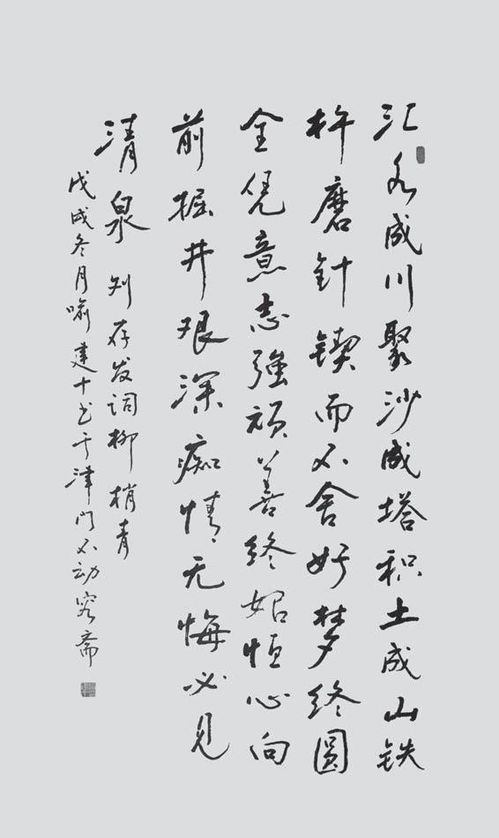 汇水成川聚沙成塔积土成山铁
杵磨针锲而不舍好梦终圆
全凭意志强顽善终始恒心向
前掘井艰深痴情无悔必见
清泉 刘存发词柳梢青
戊戌冬月喻建十书于津门不动容斋